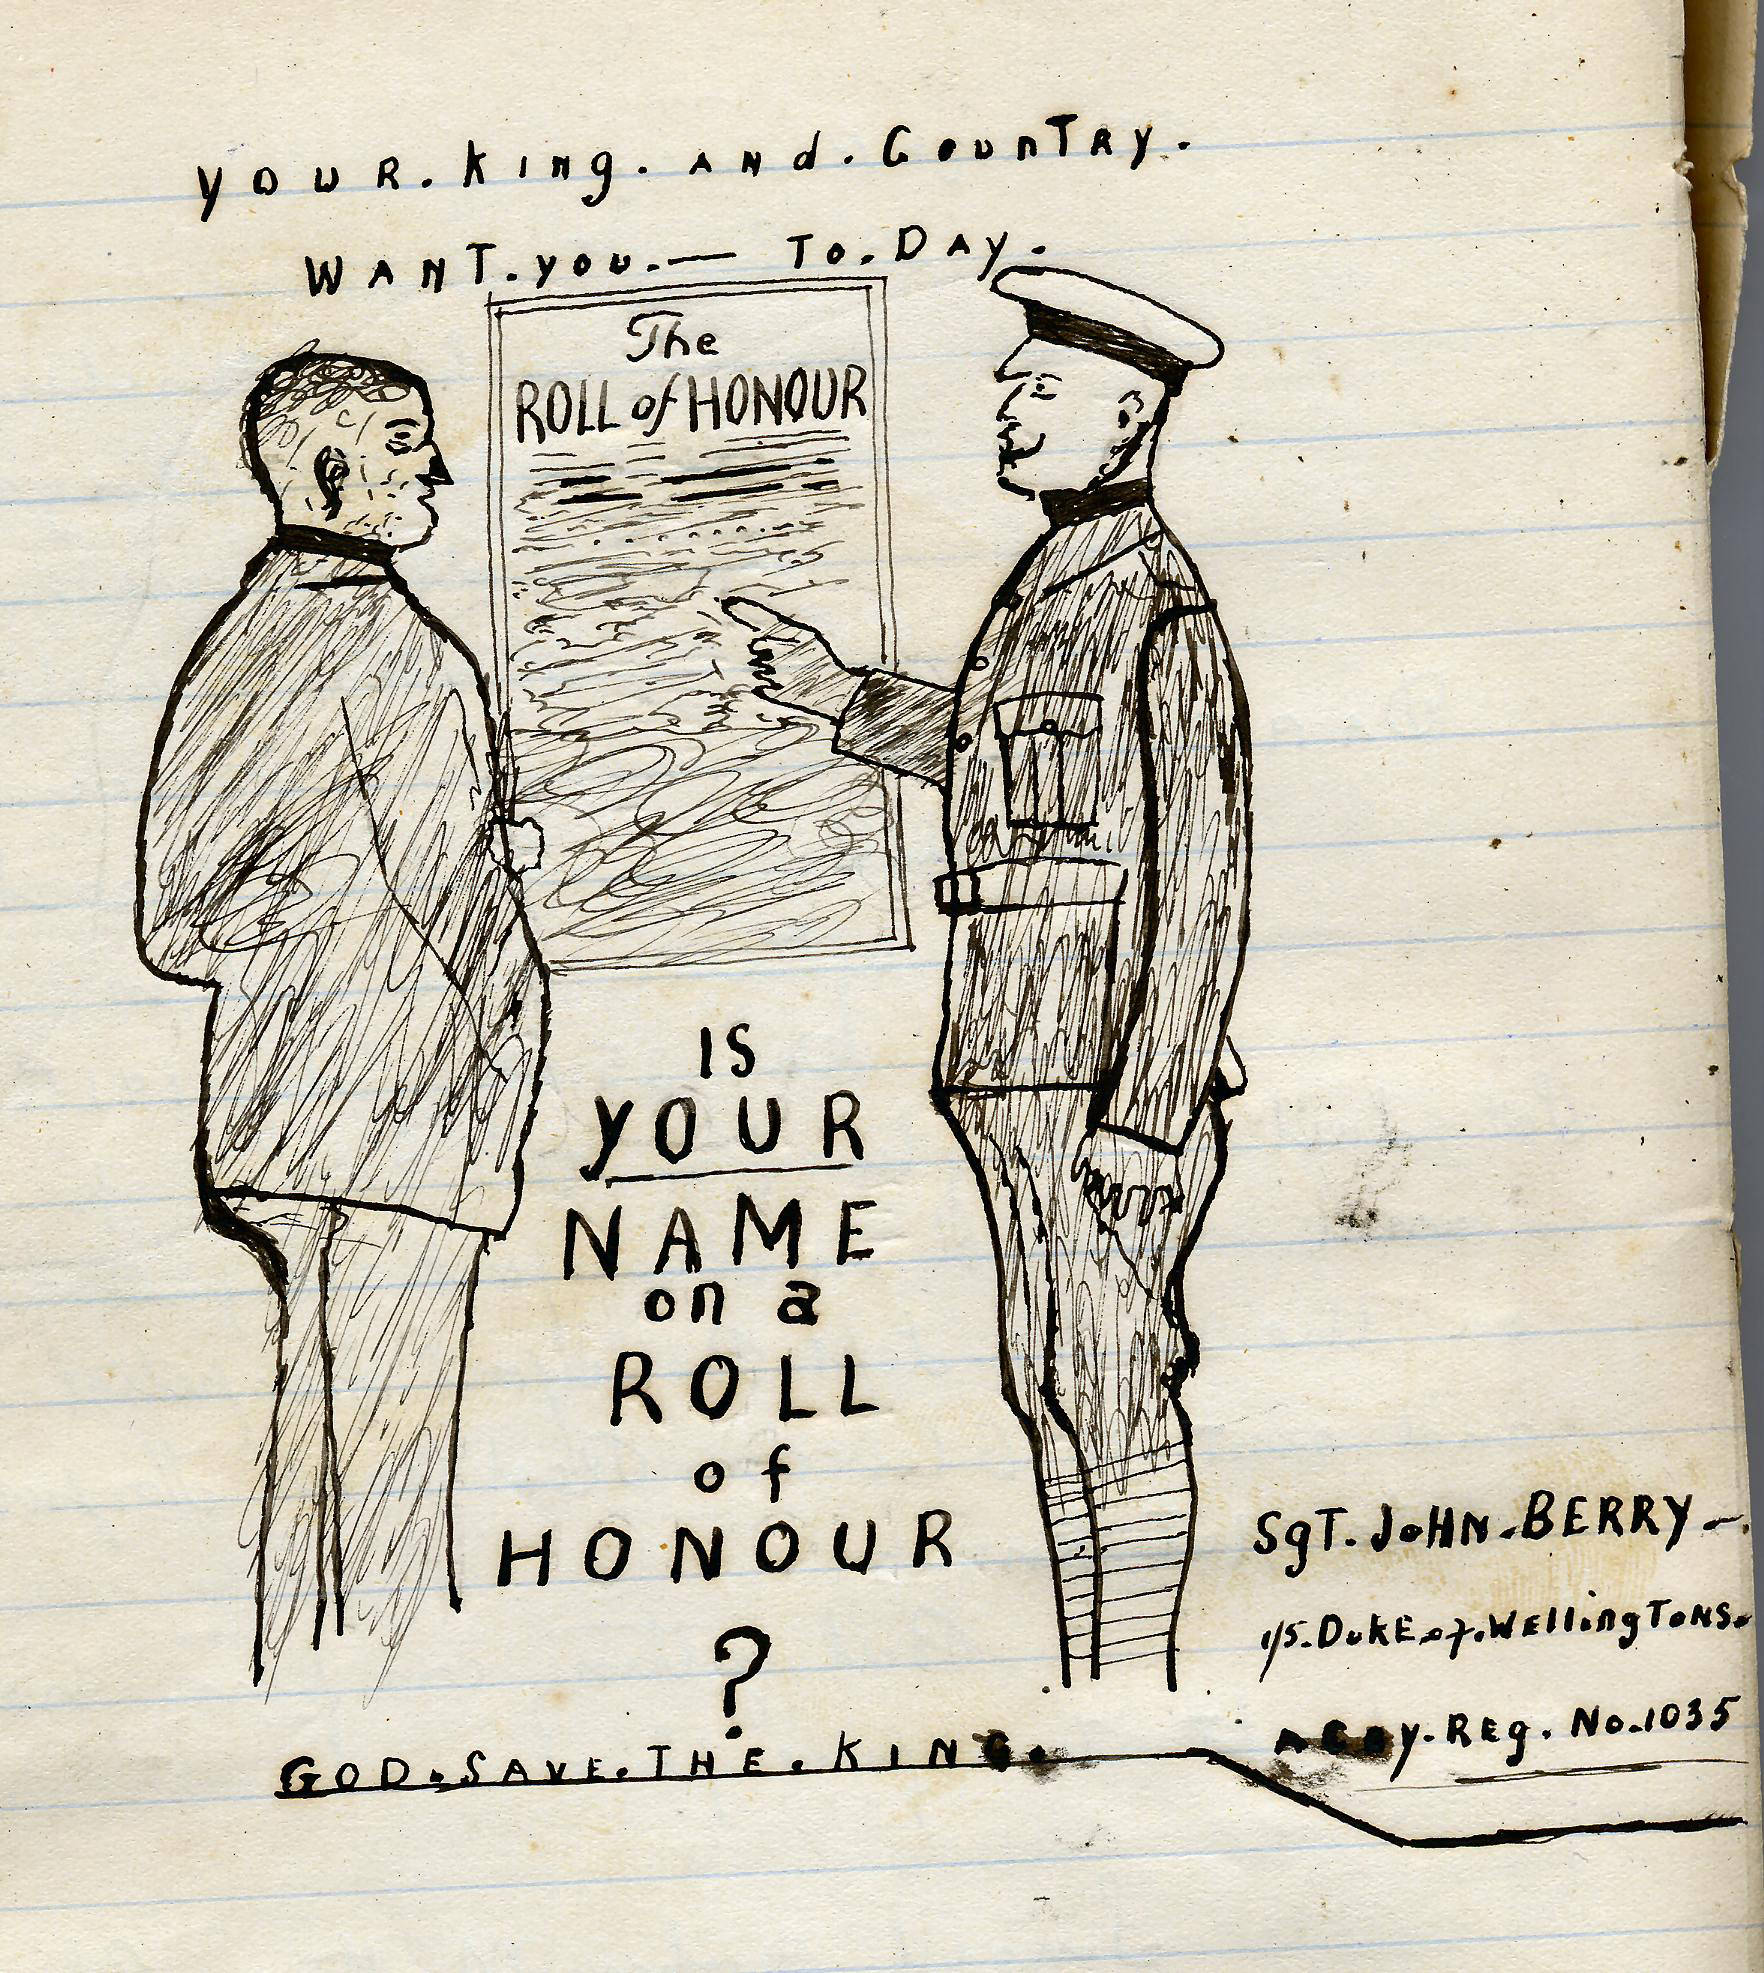 YOUR. King. AND. COUNTRY.
WANT. you. — TO. DAY.
The
ROLL of HONOUR
IS
YOUR
NAME
on a
ROLL
of
HONOUR
?
GOD. SAVE. THE. KING.
SgT. JOHN. BERRY -.
1/5. DUKE. of. WellingTONS.
A COY. Reg. No. 1035